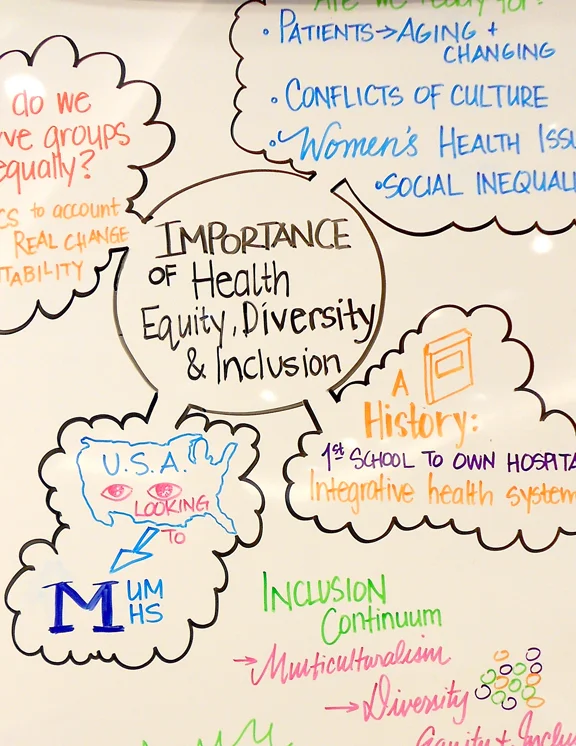 Are we ready for?
• PATIENTS→AGING +
CHANGING
• CONFLICTS OF CULTURE
• Women's HEALTH ISSU
• SOCIAL INEQUALI
do we
ve groups
equally?
CS to account
REAL CHANGE
TABILITY
IMPORTANCE
OF Health
Equity, Diversity
& Inclusion
A
History:
1st SCHOOL TO OWN HOSPITA
Integrative health system
U.S.A.
LOOKING
TO
M UM
HS
INCLUSION
Continuum
→ Multiculturalism
→ Diversity
Equity + Inclu